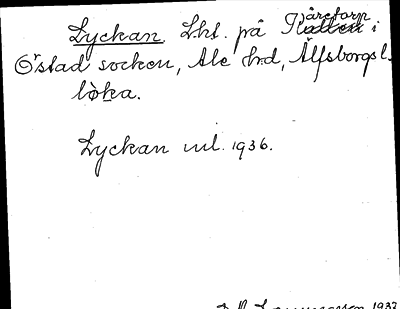 Lyckan. Lht. på Gåretorp i
Östad socken, Ale hrd, Älfsborgs l.
lȯka.
Lyckan inl. 1936.
1937